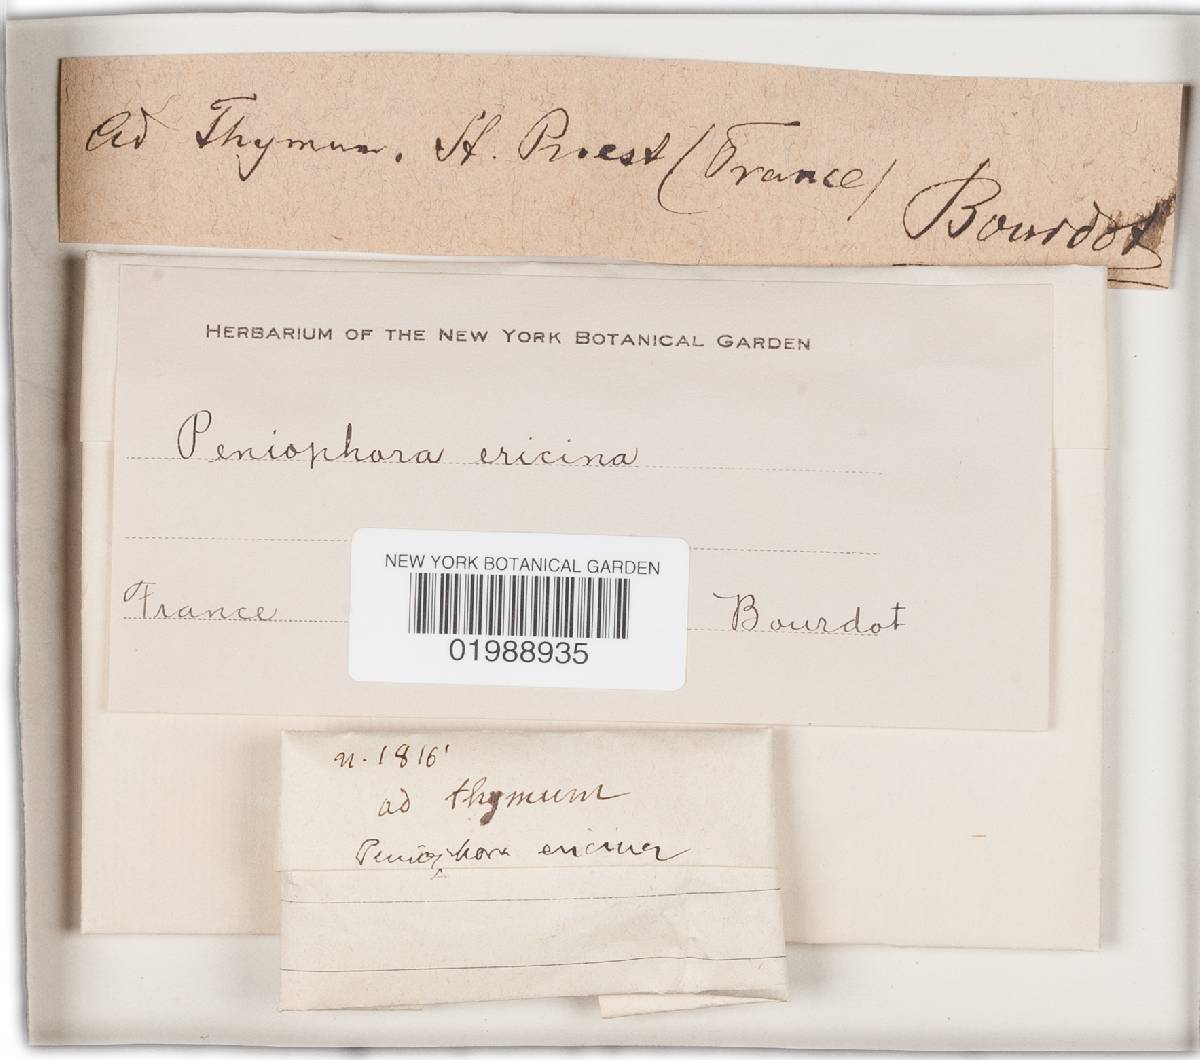 ad Thymum. St. Priest (France)
Bourdot
HERBARIUM OF THE NEW YORK BOTANICAL GARDEN
Peniophora ericina
NEW YORK BOTANICAL GARDEN
France
Bourdot
01988935
n. 1816
ad thymum
Peniophora ericina